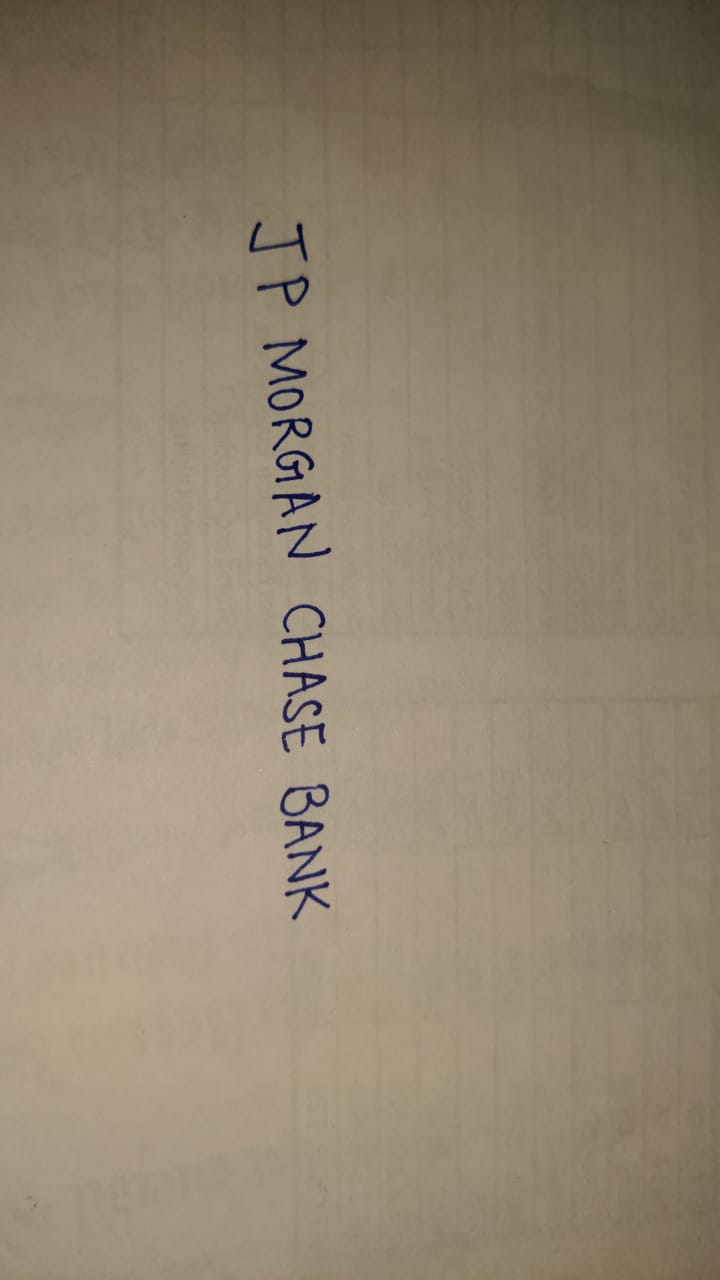 JP MORGAN CHASE BANK